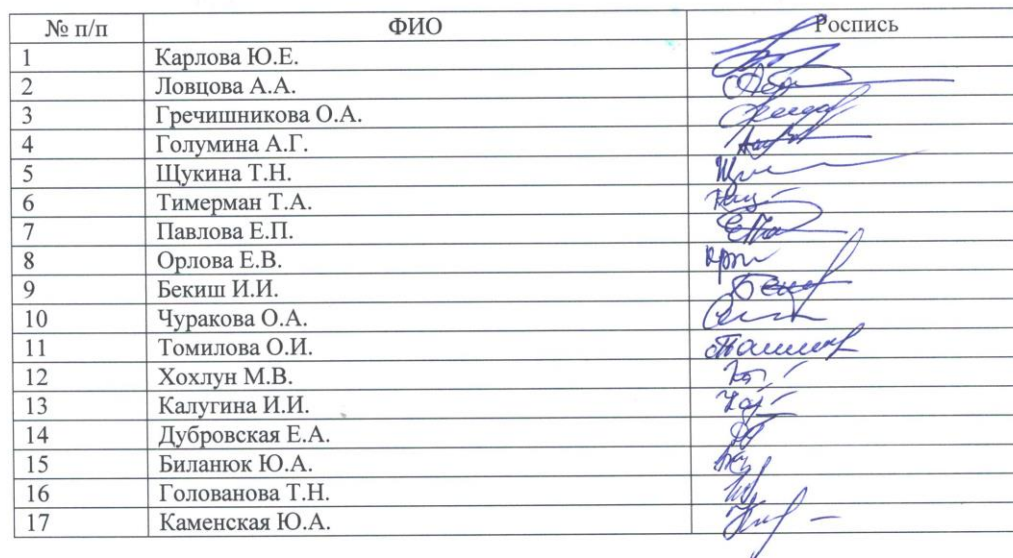 № п/п ФИО Роспись
1 Карлова Ю.Е.
2 Ловцова А.А.
3 Гречишникова О.А.
4 Голумина А.Г.
5 Щукина Т.Н.
6 Тимерман Т.А.
7 Павлова Е.П.
8 Орлова Е.В.
9 Бекиш И.И.
10 Чуракова О.А.
11 Томилова О.И.
12 Хохлун М.В.
13 Калугина И.И.
14 Дубровская Е.А.
15 Биланюк Ю.А.
16 Голованова Т.Н.
17 Каменская Ю.А.